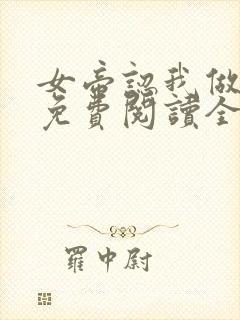 女帝認我做
免費閱讀全
羅中尉